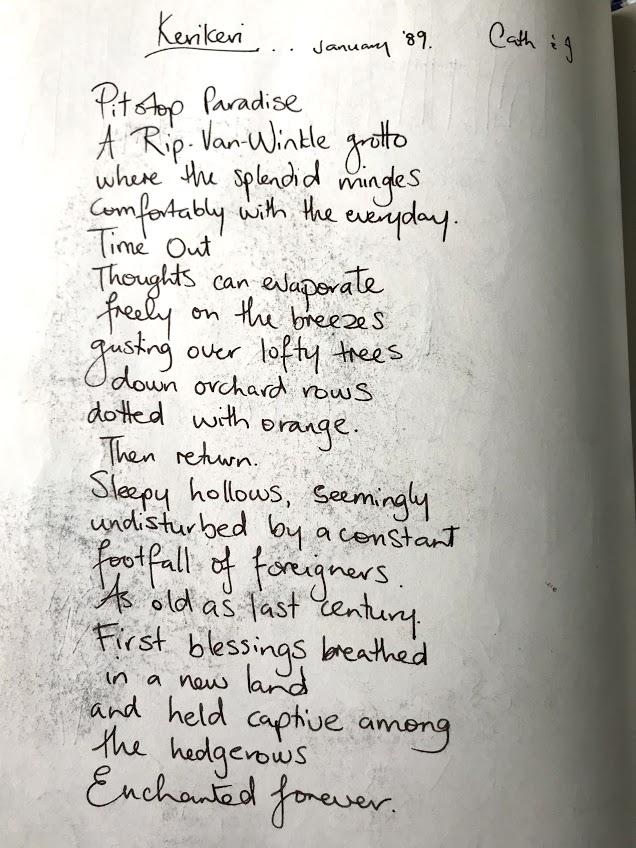 Kerikeri ... January '89. Cath & J
Pitstop Paradise
A Rip-Van-Winkle grotto
where the splendid mingles
comfortably with the everyday.
Time Out
Thoughts can evaporate
freely on the breezes
gusting over lofty trees
down orchard rows
dotted with orange.
Then return.
Sleepy hollows, seemingly
undisturbed by a constant
footfall of foreigners.
As old as last century.
First blessings breathed
in a new land
and held captive among
the hedgerows
Enchanted forever.